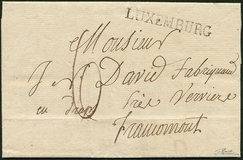 LUXEMBURG
Monsieur
J N David fabriquant
en Draps
très Verviers
francomont